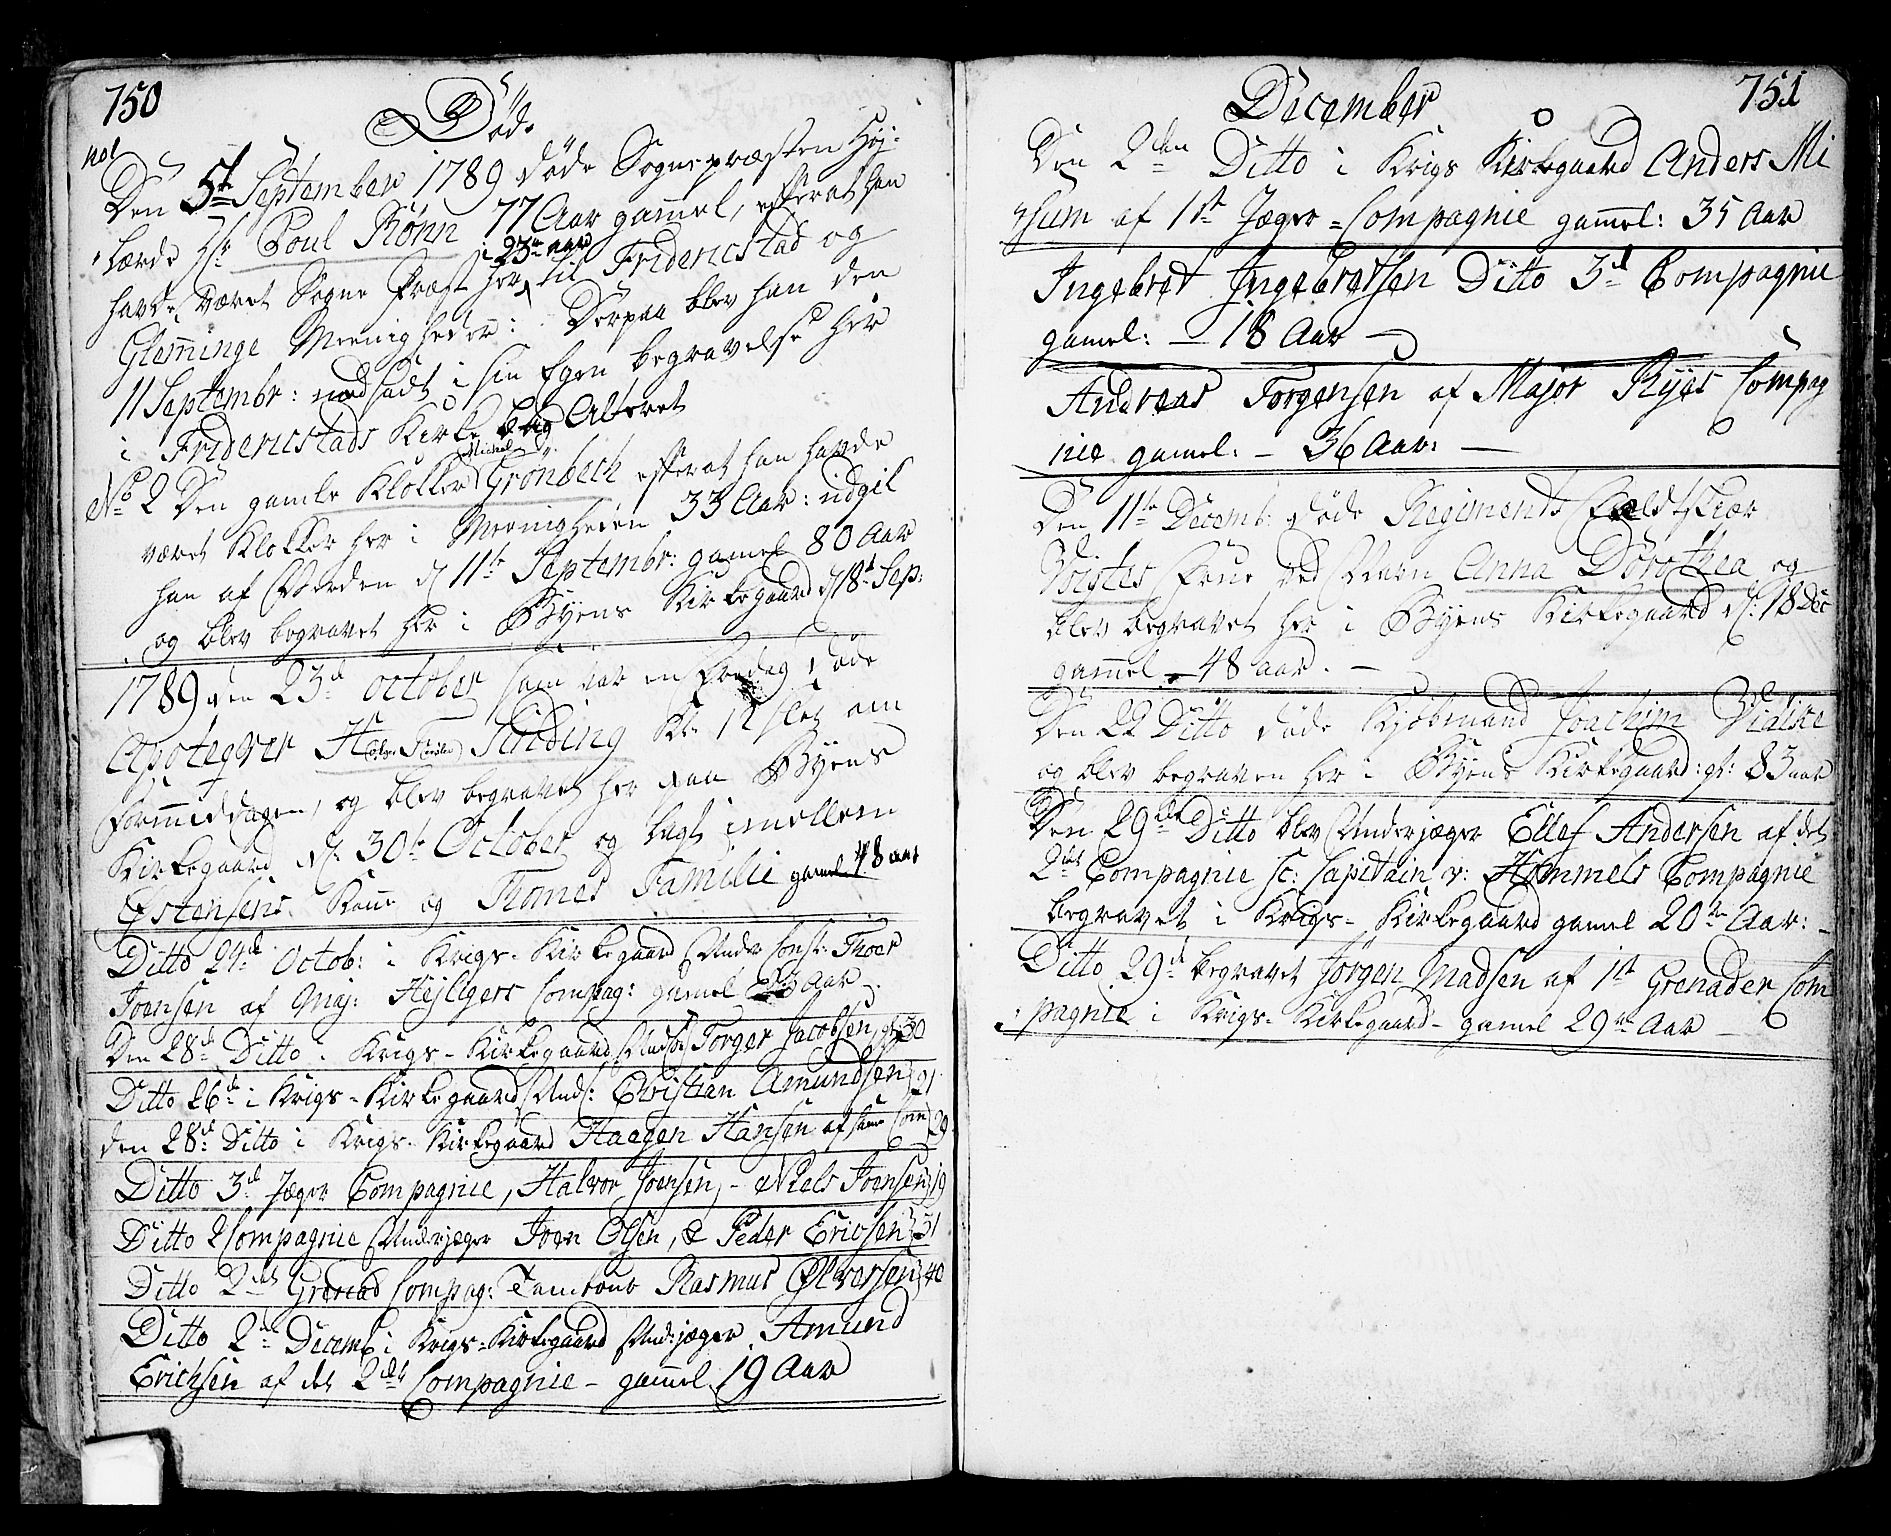 750
Døde
No 1
Den 5te September 1789 døde Sognepræsten Høy-
lærde Hr Poul Rønn 77 Aar gam̄el, efterat han
havde været Sogne Præst her i 23 aar til Fridericstad og
Glem̄inge Meenigheder: Derpaa blev han den
11 Septembr: nedsadt i sin Egen begravelse her
i Fridericstads Kirke bag Alteret
No 2 Den gamle Klokker Michael Grönbech efterat han havde
været Klokker her i Meenigheden 33 Aar: udgik
han af Verden d 11te Septembr: gamel 80 Aar
og blev begravet her i Byens Kirkegaard d 18de Sep:
1789 den 23d october som var en Fredag døde
Apoteqver H Sinding Kl. 12 slet om
Formiddagen, og blev begravet her paa Byens
Kirkegaard d: 30te October og lagt imellem
Østensens Kone og Thomes Familie gamel 48 aar
Ditto 24de Octob: i Krigs-Kirkegaard Under Const: Thoer
Joensen af Maj: Hejligers Compag: gamel Aar
Den 28de Ditto i Krigs-Kirkegaard Torger Jacobsen, gl: 30
Ditto 26de i Krigs-Kirkegaard Und: Christian Amundsen 21
den 28de Ditto i Krigs-Kirkegaard Haagen Hansen af same Com 29
Ditto 3d Jæger Compagnie, Halvor Joensen, - Niels Joensen 19
Ditto 2 Compagnie Underjæger Joen Olsen, & Peder Ericsen 31
Ditto 2det Grenad Compag: Tambour Rasmus 40
Ditto 2de Decemb i Krigs-Kirkegaard Und:jæger Amund
Erichsen af det 2det Compagnie - gam̄el 19 Aar
751
December
Den 2den Ditto i Krigs Kirkegaard Anders Mi
sum af 1st Jæger-Compagnie gam̄el: 35 Aar
Ingebret Ingebretsen Ditto 3d Compagnie
gamel: - 18 Aar -
Andreas Torgensen af Major Ryes Compag
nie gamel: - 36 Aar: -
Den 11te Decemb: døde Regiments Feldtskiær
Voistes Frue ved Navn Anna Dorothea og
blev begravet her i Byens Kirkegaard d: 18 Dec
gam̄el - 48 aar. -
Den 22 Ditto døde Kjøbmand Joachim Vialke
og blev begraven her i Byens Kirkegaard: gl: 83 aar
Den 29de Ditto blev Underjæger Ellef Andersen af det
2det Compagnie sc: Capitain v: Hammels Compagnie
begravet i Krigs-Kirkegaard gamel 20te Aar: -
Ditto 29de begravet Jørgen Madsen af 1st Grenader Com
pagnie i Krigs-Kirkegaard - gamel 29 Aar -